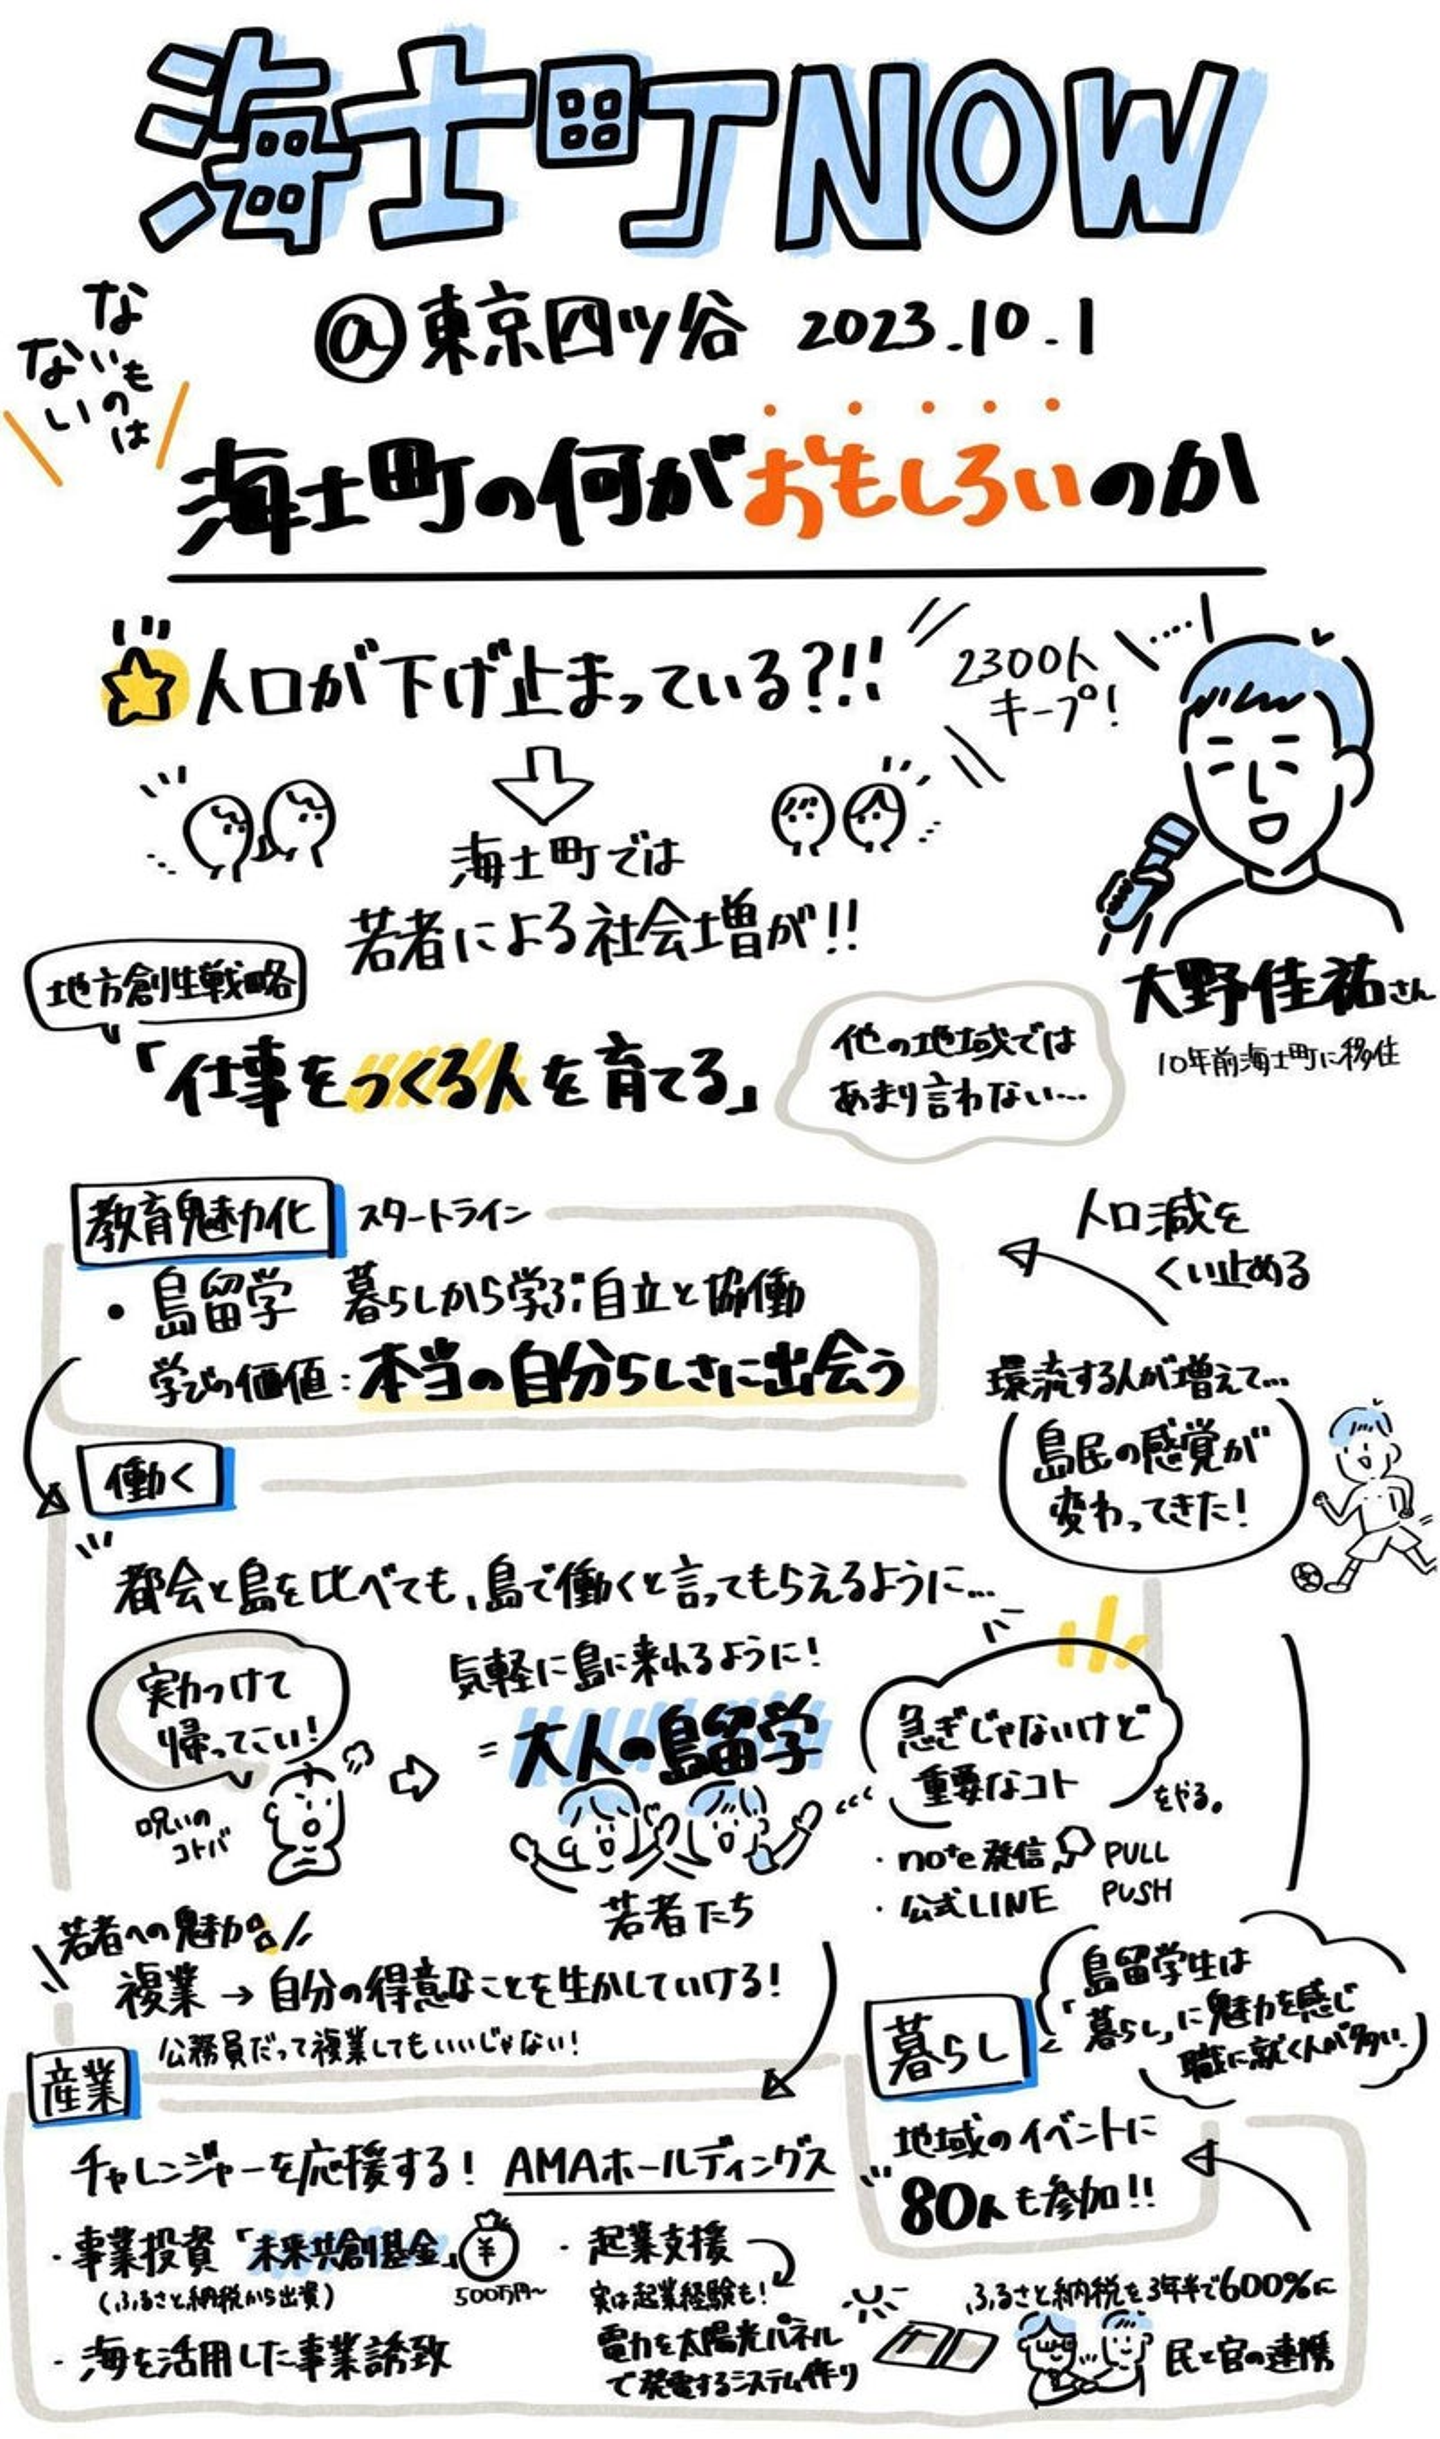 海士町NOW
@東京四ツ谷 2023.10.1
ないものは
ない
海士町の何がおもしろいのか
人口が下げ止まっている?!!
2300人
キープ!
海士町では
若者による社会増が!!
大野佳祐さん
10年前海士町に移住
地方創生戦略
「仕事をつくる人を育てる」
他の地域では
あまり言わない…
教育魅力化 スタートライン
・島留学 暮らしから学ぶ自立と協働
学びの価値:本当の自分らしさに出会う
人口減を
くい止める
環流する人が増えて…
島民の感覚が
変わってきた!
働く
都会と島を比べても、島で働くと言ってもらえるように…
実力つけて
帰ってこい!
呪いの
コトバ
気軽に島に来れるように!
=大人の島留学
若者たち
急ぎじゃないけど
重要なコト
をやる。
・note発信 PULL
・公式LINE PUSH
若者への魅力
複業→自分の得意なことを生かしていける!
公務員だって複業してもいいじゃない!
暮らし
島留学生は
「暮らし」に魅力を感じ
職に就く人が多い
地域のイベントに
80人も参加!!
産業
チャレンジャーを応援する! AMAホールディングス
・事業投資「未来共創基金」
(ふるさと納税から出資)
¥
500万円〜
・海を活用した事業誘致
・起業支援
実は起業経験も!
電力を太陽光パネル
で発電するシステム作り
ふるさと納税を3年半で600%に
民と官の連携